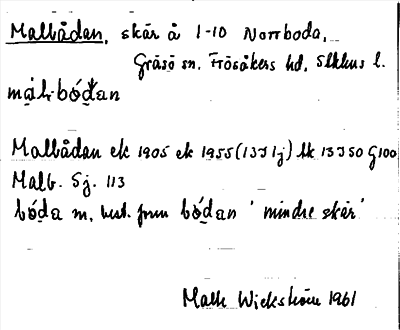 Malbådan, skär å 1-10 Norrboda,
Gräsö sn. Frösåkers hd. Sthlms l.
má̀l-bó̀dan
Malbådan ek 1905 ek 1955 (13J 1j) tk 13J50 G100
Malb. Sj. 113
bóda m, best. form bódan 'mindre skär'
Mats Wickström 1961